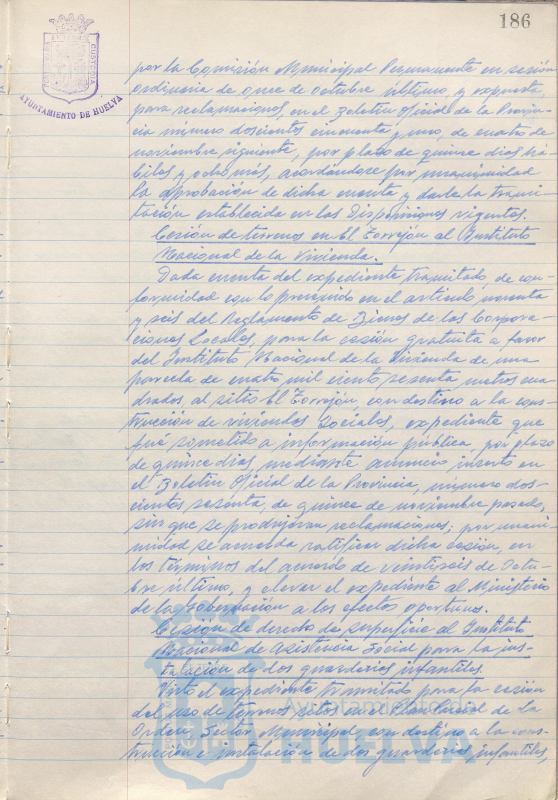 186
AYUNTAMIENTO DE HUELVA
por la Comisión Municipal Permanente en sesión
ordinaria de once de octubre último, y expuesta
para reclamaciones, en el Boletín Oficial de la Provin-
cia número doscientos cincuenta y uno, de cuatro de
noviembre siguiente, por plazo de quince días há-
biles y ocho más, acordándose por unanimidad
la aprobación de dicha cuenta y darle la trami-
tación establecida en las Disposiciones vigentes.
Cesión de terrenos en El Torrejón al Instituto
Nacional de la Vivienda.
Dada cuenta del expediente tramitado, de con-
formidad con lo prevenido en el artículo noventa
y seis del Reglamento de Bienes de las Corpora-
ciones Locales, para la cesión gratuita a favor
del Instituto Nacional de la Vivienda de una
parcela de cuatro mil ciento sesenta metros cua-
drados al sitio El Torrejón, con destino a la cons-
trucción de viviendas Sociales, expediente que
fué sometido a información pública por plazo
de quince días, mediante anuncio inserto en
el Boletín Oficial de la Provincia, número dos-
cientos sesenta, de quince de noviembre pasado,
sin que se produjeran reclamaciones; por unani-
midad se acuerda ratificar dicha cesión, en
los términos del acuerdo de veintiseis de Octu-
bre último, y elevar el expediente al Ministerio
de la Gobernación a los efectos oportunos.
Cesión de derecho de superficie al Instituto
Nacional de Asistencia Social para la ins-
talación de dos guarderías infantiles.
Visto el expediente tramitado para la cesión
del uso de terrenos sitos en el Plan Parcial de La
Orden, Sector Municipal, con destino a la cons-
trucción e instalación de dos guarderías infantiles,
Ayuntamiento de
HUELVA